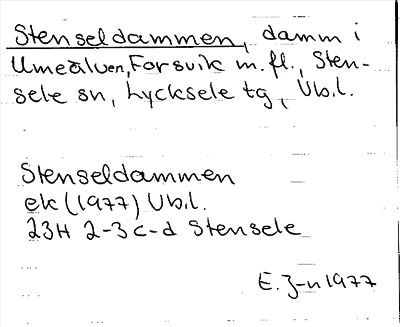 Stenseldammen, damm i
Umeälven, Forsvik m. fl., Sten-
sele sn, Lycksele tg, Vb.l.
Stenseldammen
ek (1977) Vb.l.
23H 2-3 c-d Stensele
E. J-n 1977